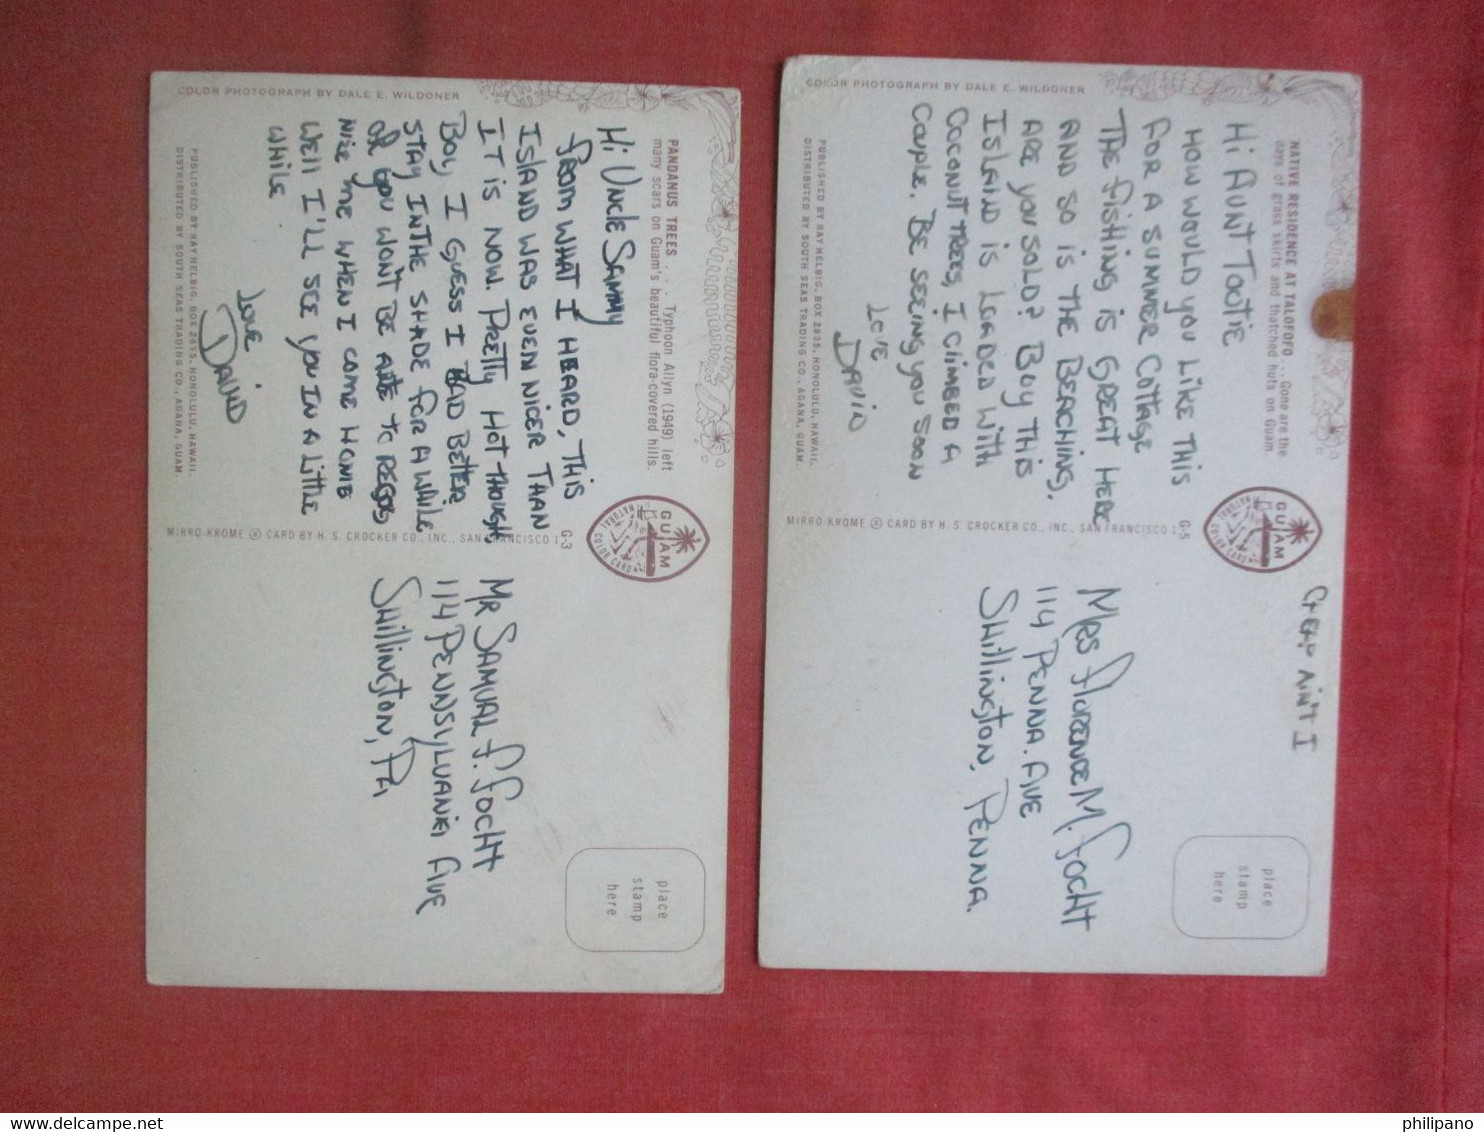 COLOR PHOTOGRAPH BY DALE E. WILDONER
PANDANUS TREES . . . Typhoon Allyn (1949) left
many scars on Guam's beautiful flora-covered hills.
Hi Uncle Sammy
from what I heard, this
Island was even nicer than
it is now. Pretty hot though,
Boy, I guess I bad better
stay in the shade for awhile
or you won't be able to
nize me when I come home
Well I'll see you in a little
while
Love
David
PUBLISHED BY RAY HELBIG, BOX 2835, HONOLULU, HAWAII.
DISTRIBUTED BY SOUTH SEAS TRADING CO., AGANA, GUAM.
MIRRO-KROME ® CARD BY H. S. CROCKER CO., INC., SAN FRANCISCO 1
G-3
GUAM
NATURAL COLOR CARD
Mr Samual F. Focht
114 Pennsylvania Ave
Shillington, Pa
place
stamp
here
COLOR PHOTOGRAPH BY DALE E. WILDONER
NATIVE RESIDENCE AT TALOFOFO . . . Gone are the
days of grass skirts and thatched huts on Guam.
Hi Aunt Tootie
How would you like this
for a summer cottage
The fishing is great here
and so is the beaching.
Are you sold? Boy this
Island is loaded with
coconut trees, I climbed a
couple. Be seeing you soon
Love
David
PUBLISHED BY RAY HELBIG, BOX 2835, HONOLULU, HAWAII.
DISTRIBUTED BY SOUTH SEAS TRADING CO., AGANA, GUAM.
MIRRO-KROME ® CARD BY H. S. CROCKER CO., INC., SAN FRANCISCO 1
G-5
GUAM
NATURAL COLOR CARD
Cheap ain't I
Mrs Florence M. Focht
114 Penna. Ave
Shillington, Penna.
place
stamp
here
philipano